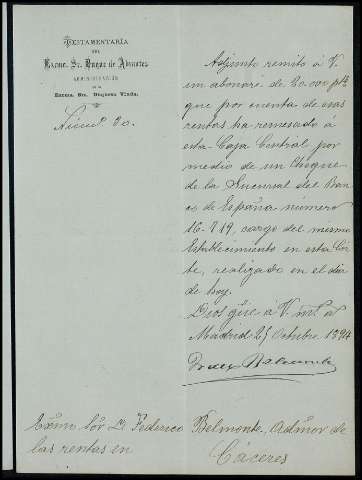 TESTAMENTARÍA
DEL
EXCMO. SR. DUQUE DE ABRANTES
ADMINISTRACIÓN
DE LA
EXCMA. SRA. DUQUESA VIUDA.
Núm.º 80.
Adjunto remito á V.
un abonaré de 20.000 pts
que por cuenta de esas
rentas ha remesado á
esta Caja Central por
medio de un cheque
de la Sucursal del Ban-
co de España número
16.719, cargo del mismo
Establecimiento en esta Cor
te, realizado en el día
de hoy.
Dios gue á V. m. a
Madrid 25 Octubre 1894
Exmo Sor D. Federico Belmonte. Admor de
las rentas en Cáceres